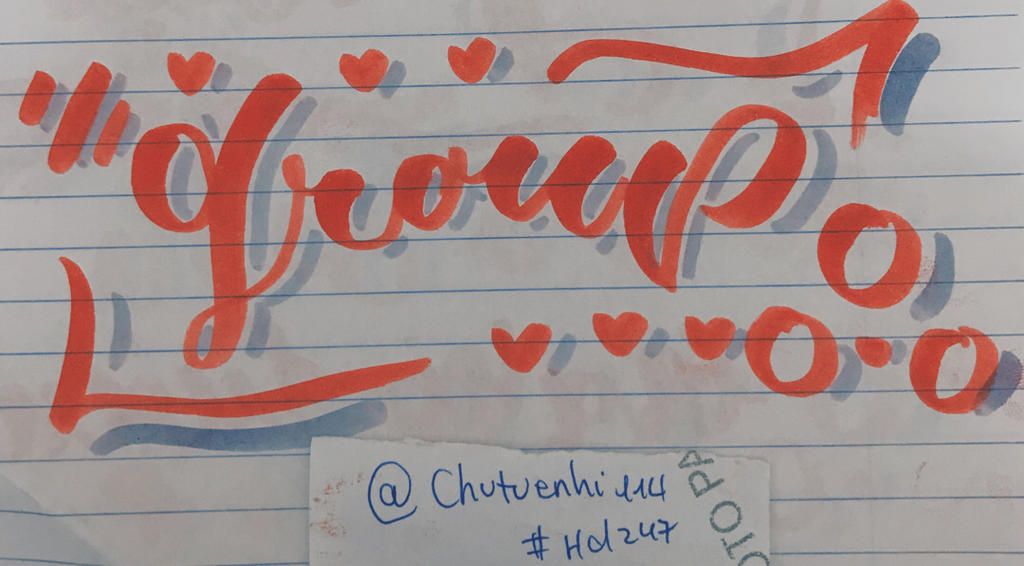 group
@Chutuenhi114
#Hd247
OTO PA